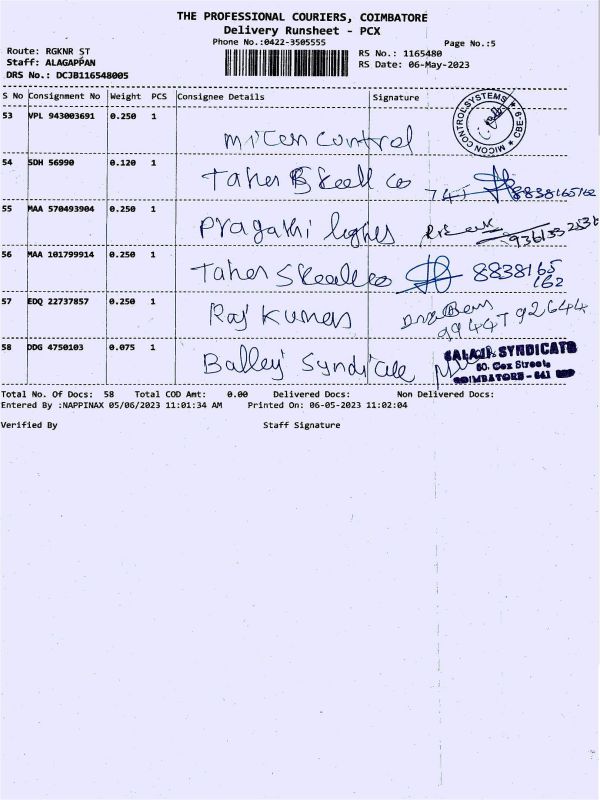 THE PROFESSIONAL COURIERS, COIMBATORE
Delivery Runsheet - PCX
Phone No.:0422-3505555
Page No.:5
Route: RGKNR ST
RS No.: 1165480
Staff: ALAGAPPAN
RS Date: 06-May-2023
DRS No.: DCJB116548005
S No Consignment No Weight PCS Consignee Details Signature
53 VPL 943003691 0.250 1
Micon Control
MICON CONTROL SYSTEMS ★ CBE-6 ★
54 SDH 56990 0.120 1
Taher Steel co 8838165162
55 MAA 570493904 0.250 1
Pragathi lights
56 MAA 101799914 0.250 1
Taher Steel co 8838165
162
57 EDQ 22737857 0.250 1
Raj Kumar
58 DDG 4750103 0.075 1
Balleji Syndicate
BALAJI SYNDICATE
60. Cox Street,
COIMBATORE - 641
Total No. Of Docs: 58 Total COD Amt: 0.00 Delivered Docs: Non Delivered Docs:
Entered By :NAPPINAX 05/06/2023 11:01:34 AM Printed On: 06-05-2023 11:02:04
Verified By Staff Signature